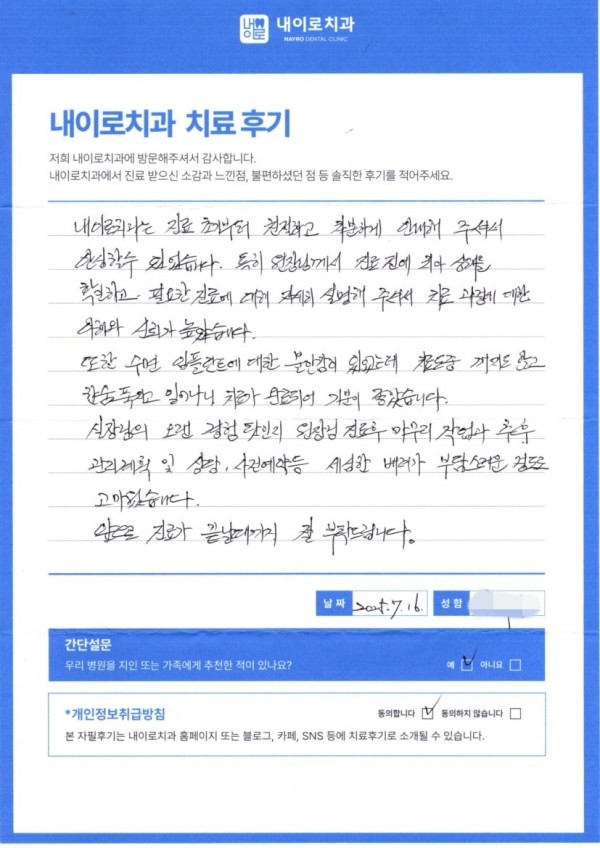 내이로치과
NAYRO DENTAL CLINIC
내이로치과 치료 후기
저희 내이로치과에 방문해주셔서 감사합니다.
내이로치과에서 진료 받으신 소감과 느낀점, 불편하셨던 점 등 솔직한 후기를 적어주세요.
내이로치과는 진료 초기부터 친절하고 차분하게 안내해 주셔서
안심할수 있었습니다. 특히 원장님께서 진료 전에 치아 상태를
확인하고 필요한 진료에 대해 자세히 설명해 주셔서 치료 과정에 대한
이해와 신뢰가 높았습니다.
또한 수면 임플란트에 대한 불안감이 있었는데 치료중 깨지도 않고
한숨 푹자고 일어나니 치료가 완료되어 기분이 좋았습니다.
실장님의 오랜 경험 탓인지 원장님 진료후 마무리 작업과 추후
관리계획 및 상담, 사전예약등 세심한 배려가 부담스러운 정도로
고마웠습니다.
앞으로 진료가 끝날때까지 잘 부탁드립니다.
날짜 2025.7.16. 성함
간단설문
우리 병원을 지인 또는 가족에게 추천한 적이 있나요? 예 아니요
*개인정보취급방침 동의합니다 동의하지 않습니다
본 자필후기는 내이로치과 홈페이지 또는 블로그, 카페, SNS 등에 치료후기로 소개될 수 있습니다.